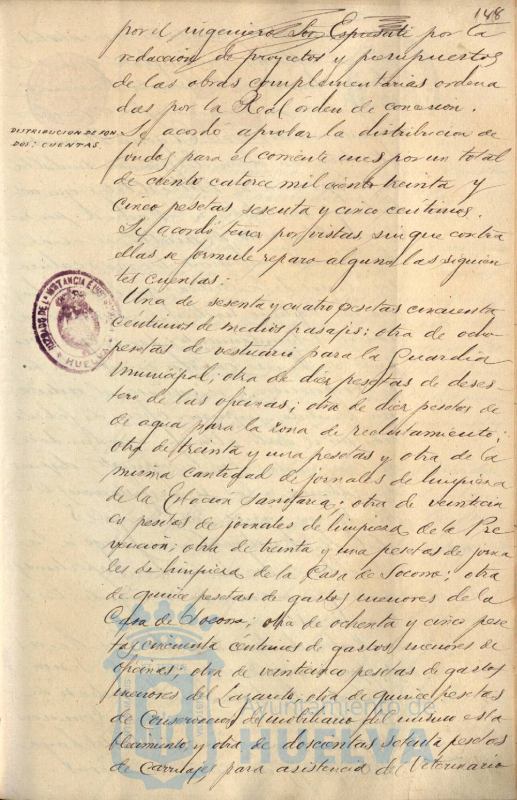 148
por el ingeniero Sor Espresati por la
redacción de proyectos y presupuestos
de las obras complementarias ordena
das por la Real orden de concesion.
DISTRIBUCION DE FON
DOS: CUENTAS.
Se acordó aprobar la distribucion de
fondos para el corriente mes por un total
de ciento catorce mil ciento treinta y
cinco pesetas sesenta y cinco centimos.
Se acordó tener por vistas, sin que contra
ellas se formule reparo alguno las siguien
tes cuentas:
Una de sesenta y cuatro pesetas cincuenta
centimos de medios pasajes; otra de ocho
pesetas de vestuario para la Guardia
Municipal; otra de diez pesetas de deses
tero de las oficinas; otra de diez pesetas de
de agua para la zona de reclutamiento;
otra de treinta y una pesetas y otra de la
misma cantidad de jornales de limpieza
de la Estación Sanitaria; otra de veinticin
co pesetas de jornales de limpieza de la Pre
vención; otra de treinta y una pesetas de jorna
les de limpieza de la Casa de Socorro; otra
de quince pesetas de gastos menores de la
Casa de Socorro; otra de ochenta y cinco pese
tas cincuenta céntimos de gastos menores de
oficinas; otra de veinticinco pesetas de gastos
menores del Lazareto, otra de quince pesetas
de conservacion del mobiliario del mismo esta
blecimiento, y otra de doscientas setenta pesetas
de carruajes para asistencia del Veterinario
JUZGADO DE 1ª INSTANCIA E
HUELVA
Ayuntamiento de
HUELVA